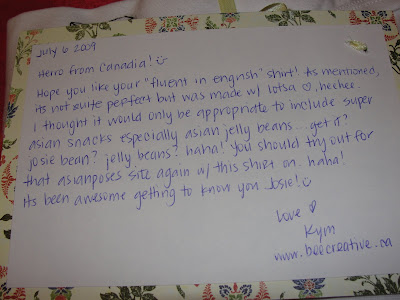 July 6 2009
Herro from Canadia! ☺
Hope you like your "fluent in engrish" shirt! As mentioned,
its not quite perfect but was made w/ lotsa ♡, heehee.
I thought it would only be appropriate to include super
asian snacks especially asian jelly beans... get it?
josie bean? jelly beans? haha! You should try out for
that asianposes site again w/ this shirt on. haha!
Its been awesome getting to know you Josie! ☺
Love ♡
Kym
www.beecreative.ca